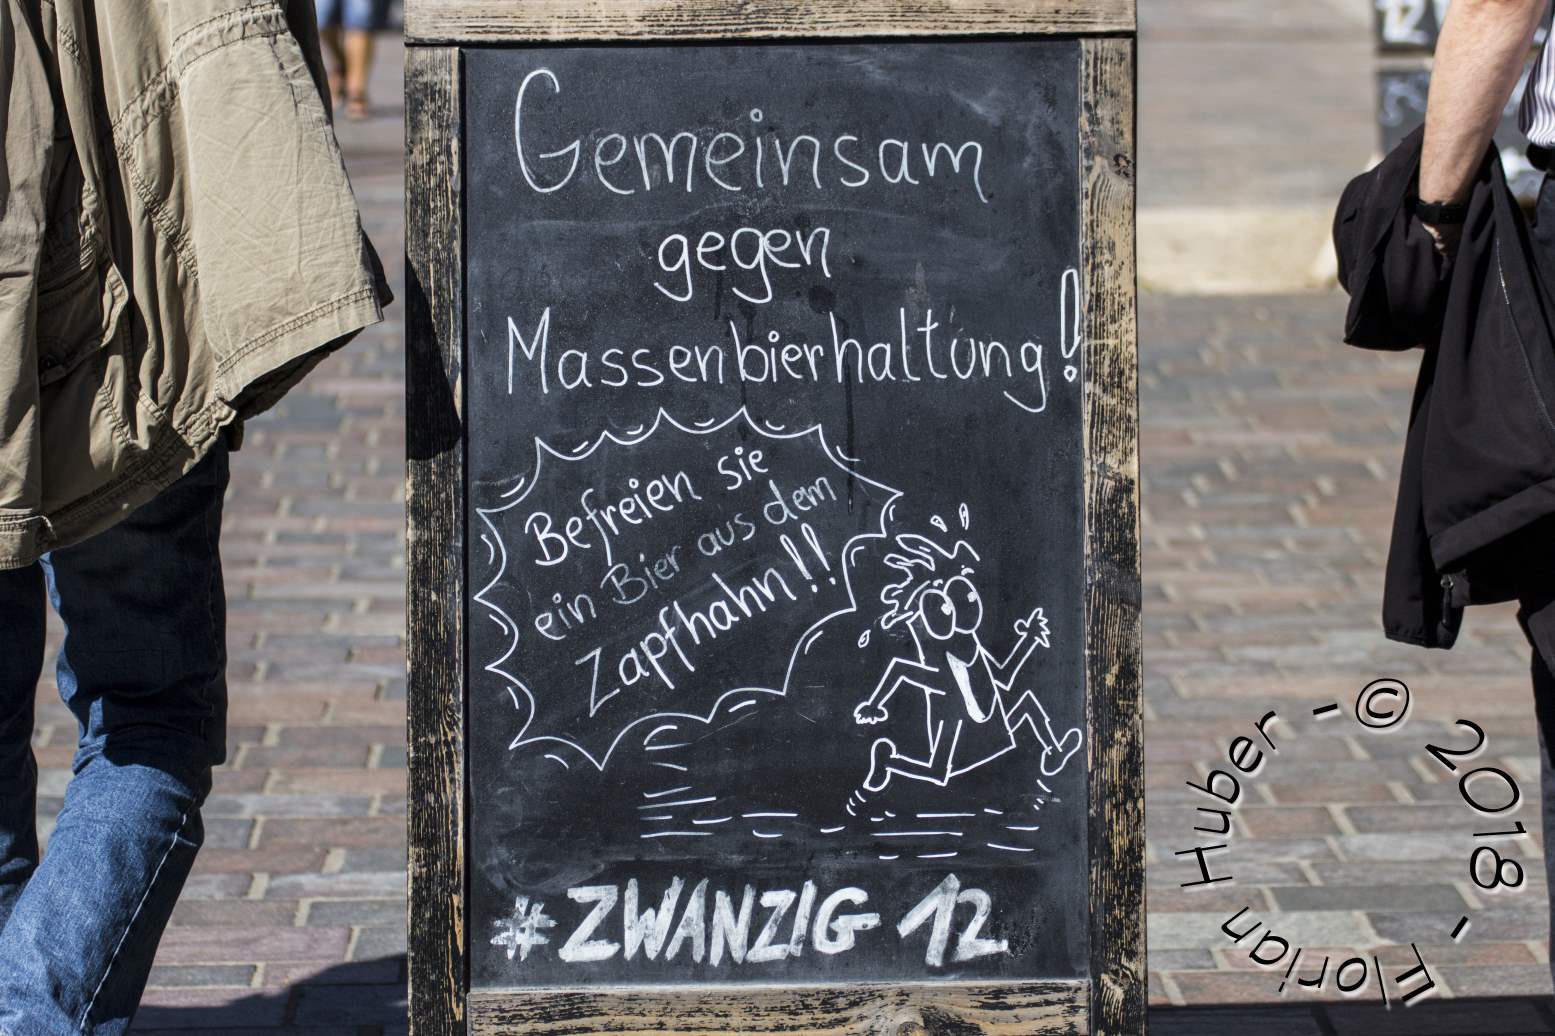 Gemeinsam
gegen
Massenbierhaltung!
Befreien sie
ein Bier aus dem
Zapfhahn!!
#ZWANZIG 12
© 2018 - Florian Huber -